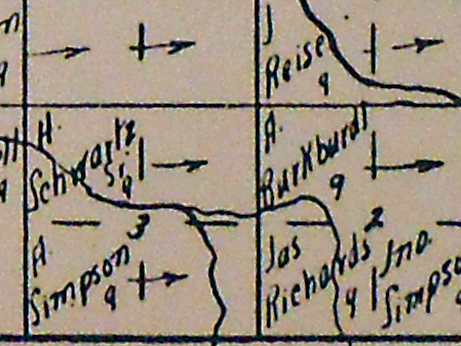 n
9
J
Reise
9
H.
Schwartz
Sr
9
A.
Burkhardt
9
3
A
Simpson
9
2
Jas
Richards
9
Jno.
Simpso